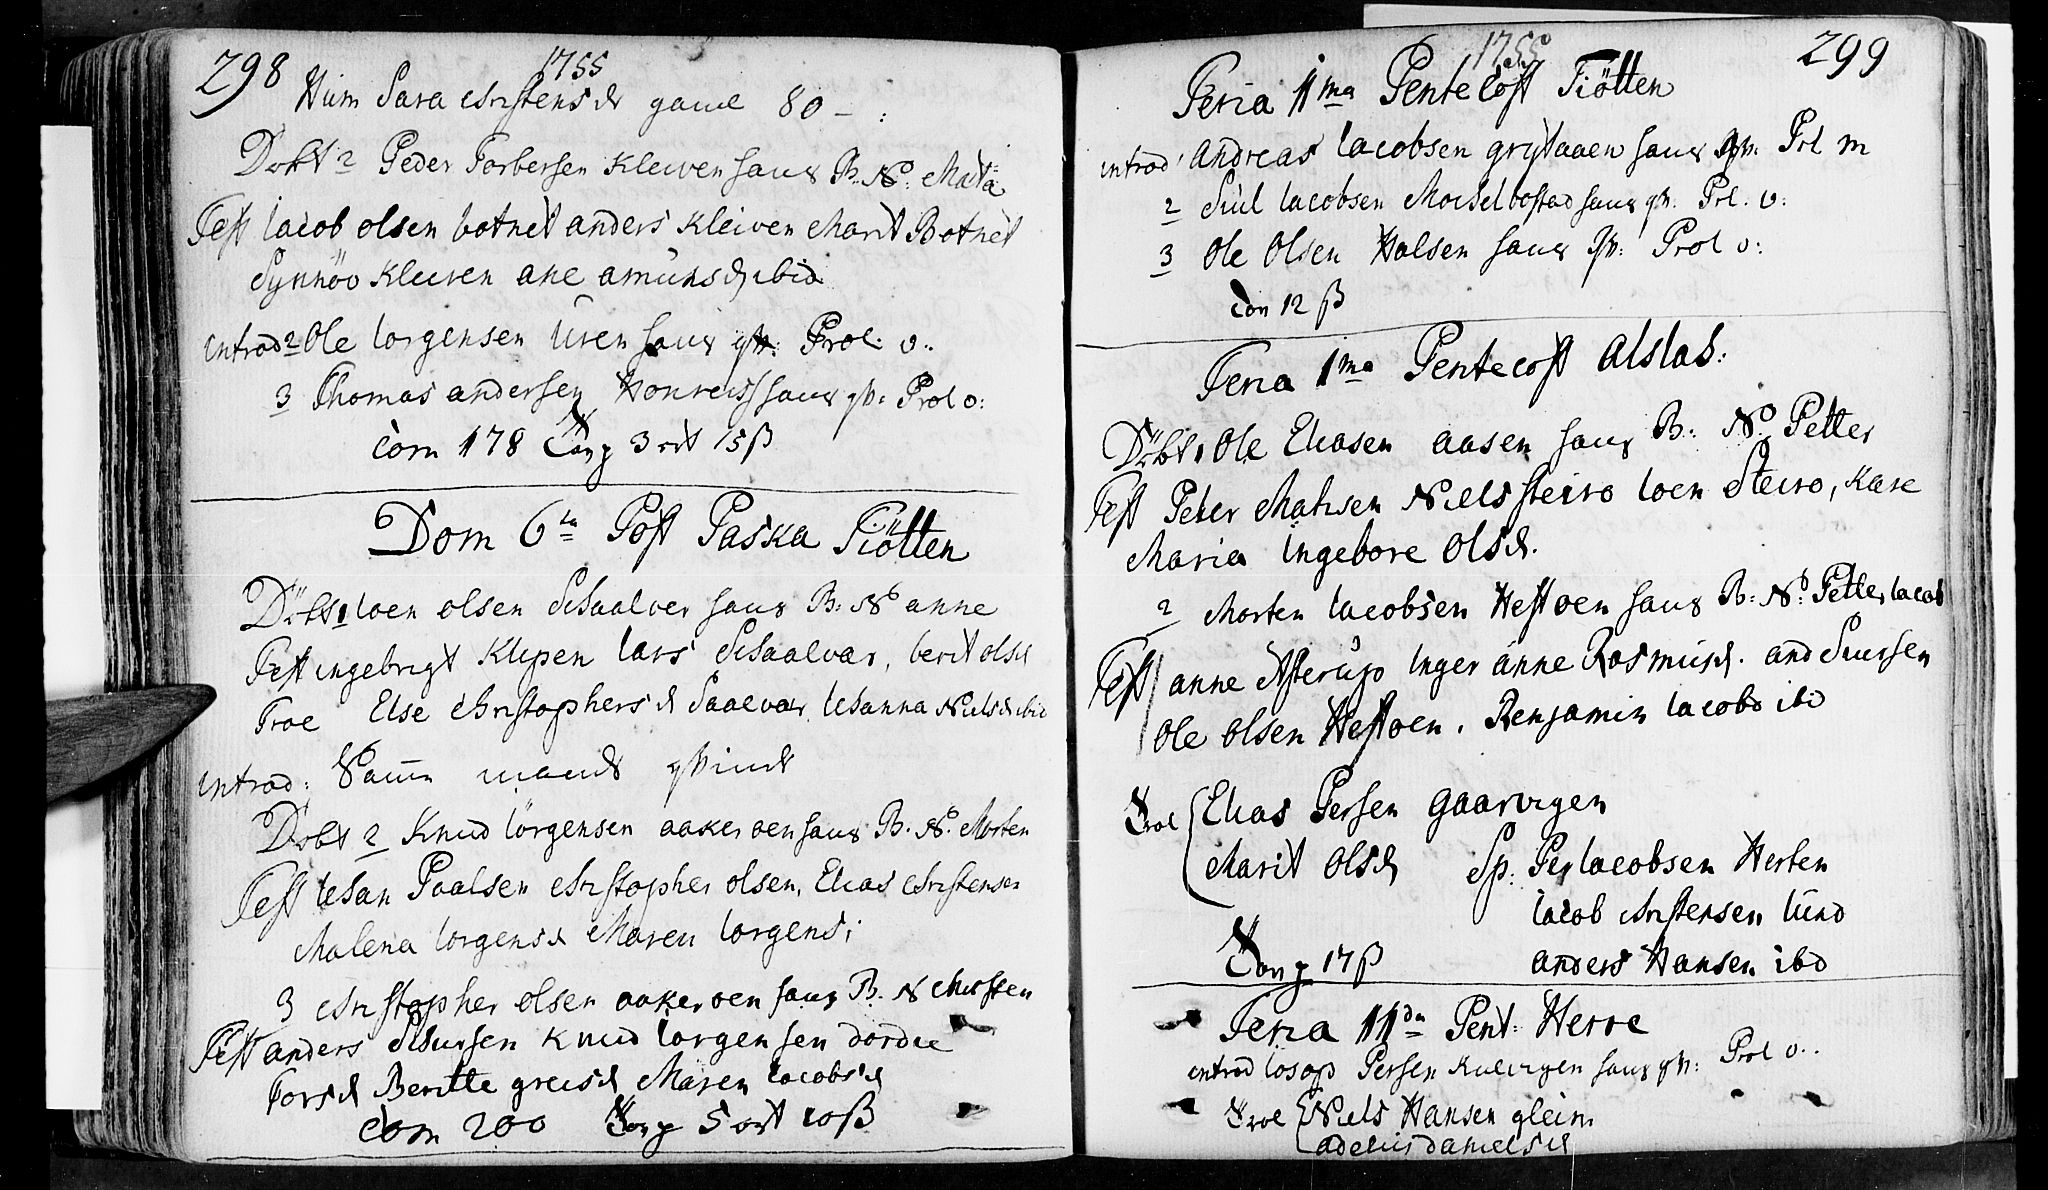 298
1755
Hum Sara christens d gaml 80 - :
Döbt 2 Peder Torbersen Kleiven hans B. N: Marta
Test Iacob olsen botnet anders Kleiven Marit Botnet
Synnöv Kleiven ane amunsd ibid
introd 2 Ole Iorgensen Uren hans qv: Prol. v:
3 Thomas andersen hans qv: Prol v:
Com 178 Tavl 3 ort 15 ß
Dom 6ta Post Paska Tiötten
Döbt 1 Ioen olsen Schaalver hans B: N anne
Test ingebrigt Klipen Lars Schaalvar, berit olsd
Troe Else christophers d Saalvar, Iohanna Niels d ibid
introd: Samme mands qvinde
Döbt 2 Knud Iörgensen aakeroen hans B. N. Morten
Test Iohan Paalsen christopher olsen, Elias christensen
Malena Iorgensd Maren Iorgens:
3 christopher olsen aakeroen hans B. N
Test anders Sciursen Knud Iorgensen dordie
Torsd Beritte greisd Maren Iacobsd
Com 200 Tavl 5 ort 10 ß
299
1755
Feria 1ma Pentecost Tiötten
introd 1 Andreas Iacobsen grytaaen hans qv: Prl m
2 Siul Iacobsen hans qv: Prl. v:
3 Ole Olsen Halsen hans qv: Prol v:
Con 12 ß
Feria 1ma Pentecost Alstah:
Döbt 1 Ole Eliasen aasen hans B: No Petter
Test Peter Matisen Niels Steiro Ioen Steiro, Kare
Maria Ingebore Olsd.
2 Morten Iacobsen Hestoen hans B: No: Petter Iacob
Test anne Asterup Inger anne Rasmusd. and Siursen
Ole Olsen Hestoen. Benjamin Iacobs ibd
Trol Elias Persen Gaarvigen
Marit Olsd Sp: Per Iacobsen Herten
Iacob christensen Lund
Tavl 17 ß anders Hansen ibd
Feria 11da Pent: Herre
introd Iosop Persen Kulvigen hans qv: Prol v:
Trol Niels Hansen glein
adelus danielsd